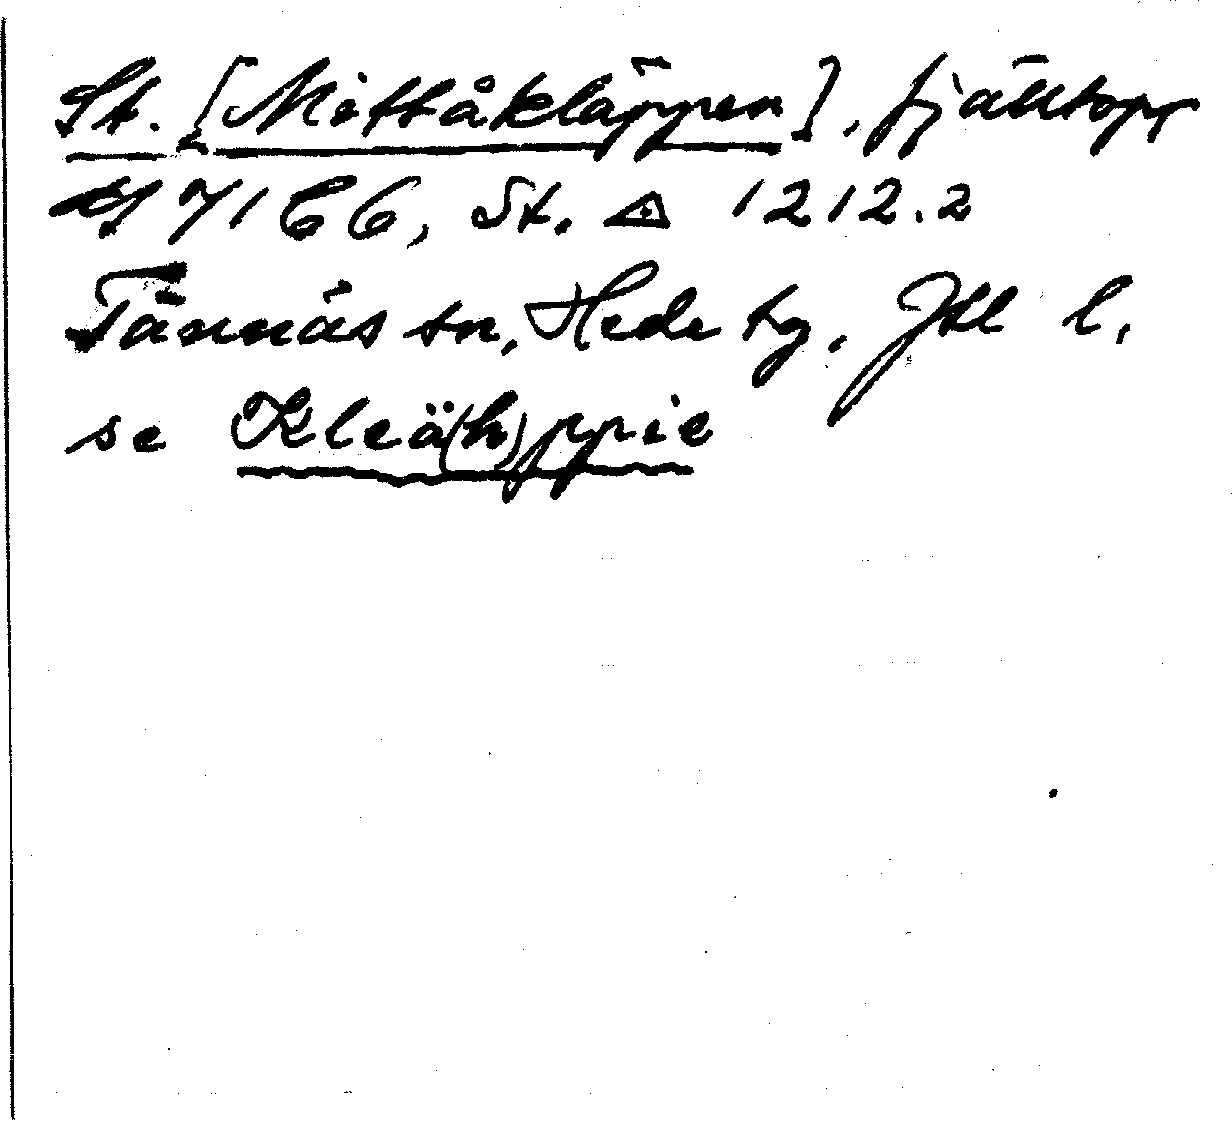 St. [Mittåkläppen], fjälltopp
7166, St. △ 1212.2
Tännäs sn, Hede tg. Jtl l.
se Kleä(h)ppie